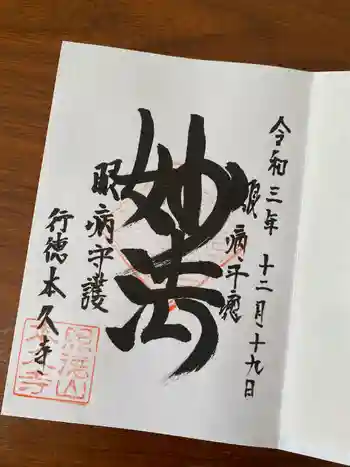 令和三年 十二月十九日
眼病平癒
妙法
眼病守護
行徳本久寺
照徳山
本久寺